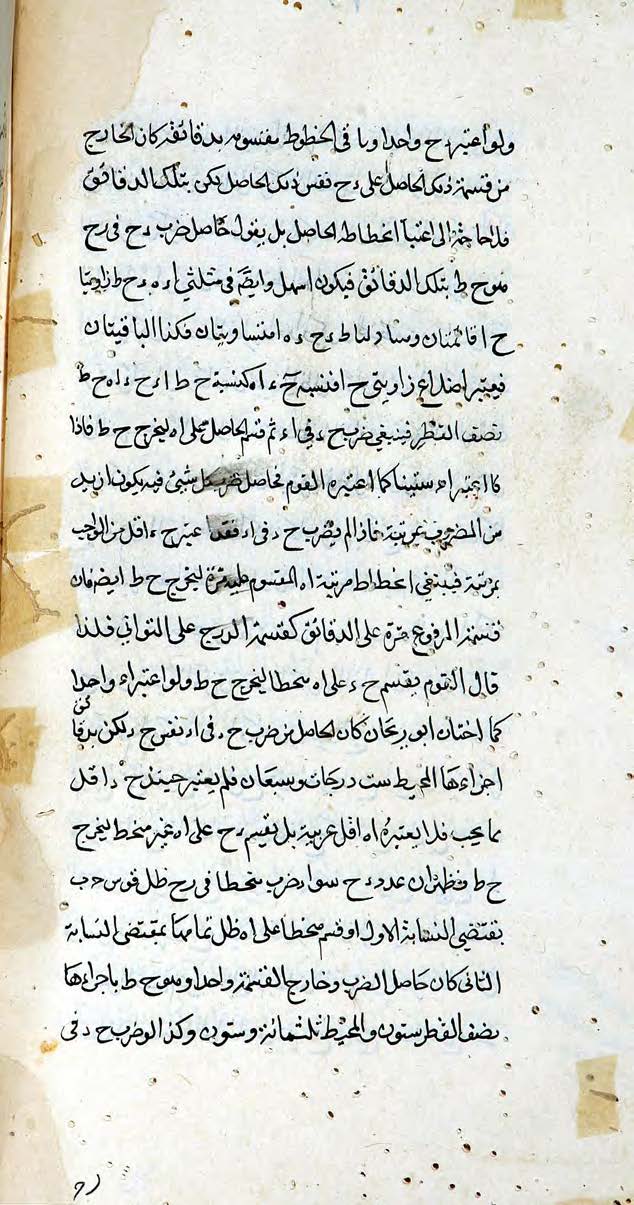 ولو اعتبر ء ح واحدا وباقى الخطوط مقسومة بدقائقه كان الخارج
من قسمة ذلك الحاصل على ء ح نفس ذلك الحاصل لكن بتلك الدقائق
فلا حاجة الى اعتبار انحطاط الحاصل بل يقول حاصل ضرب ء ح فى رح
هو ح ط بتلك الدقائق فيكون اسهل وايضا فى مثلثى ا ء ه ء ح ط زاويتا
ح ا قائمتان وزاويتا ط ء ح ء ه ا متساويتان فكذا الباقيتان
فيعتبر اضلاع زاويتى ح ا فنسبة ح ء ا ه كنسبة ح ط ا ء
نصف القطر فينبغى ضرب ح ء فى ا ء ثم قسم الحاصل على ا ه ليخرج ح ط فاذا
كا اعتبر ا ء ستينا كما اعتبره القوم فحاصل ضرب شيئ فيه يكون ازيد
من المضروب بمرتبة فاذا لم يضرب ح ء فى ا ء فقد اعتبر ح ء اقل من الواجب
بمرتبة فينبغى انحطاط مرتبة ا ه المقسوم عليه مرة ليخرج ح ط ايضا فان
قسمة المرفوع مرة على الدقائق كقسمة الدرج على الثوانى فلذا
قال القوم يقسم ح ء على ا ه منحطا ليخرج ح ط ولو اعتبر ا ء واحدا
كما اختان ابو ريحان كان الحاصل من ضرب ح ء فى ا ء نفس ح ء لكن بدقا ئق
اجزاءها المحيط ست درجات وسبعان فلم يعتبر حينئذ ح ء اقل
مما يجب فلا يعتبر ا ه اقل بمرتبة بل يقسم ء ح على ا ه غير منحط ليخرج
ح ط فظهر ان عدد ء ح سواء ضرب منحطا فى رح ظل قوس ح ب
بمقتضى التشابة الاول او قسم منحطا على ا ه ظل تمامها بمقتضى التشابة
الثانى كان حاصل الضرب وخارج القسمة واحدا وهو ح ط باجزاءها
نصف القطر ستون والمحيط ثلثمائة وستون وكذا لو ضرب ح ء فى